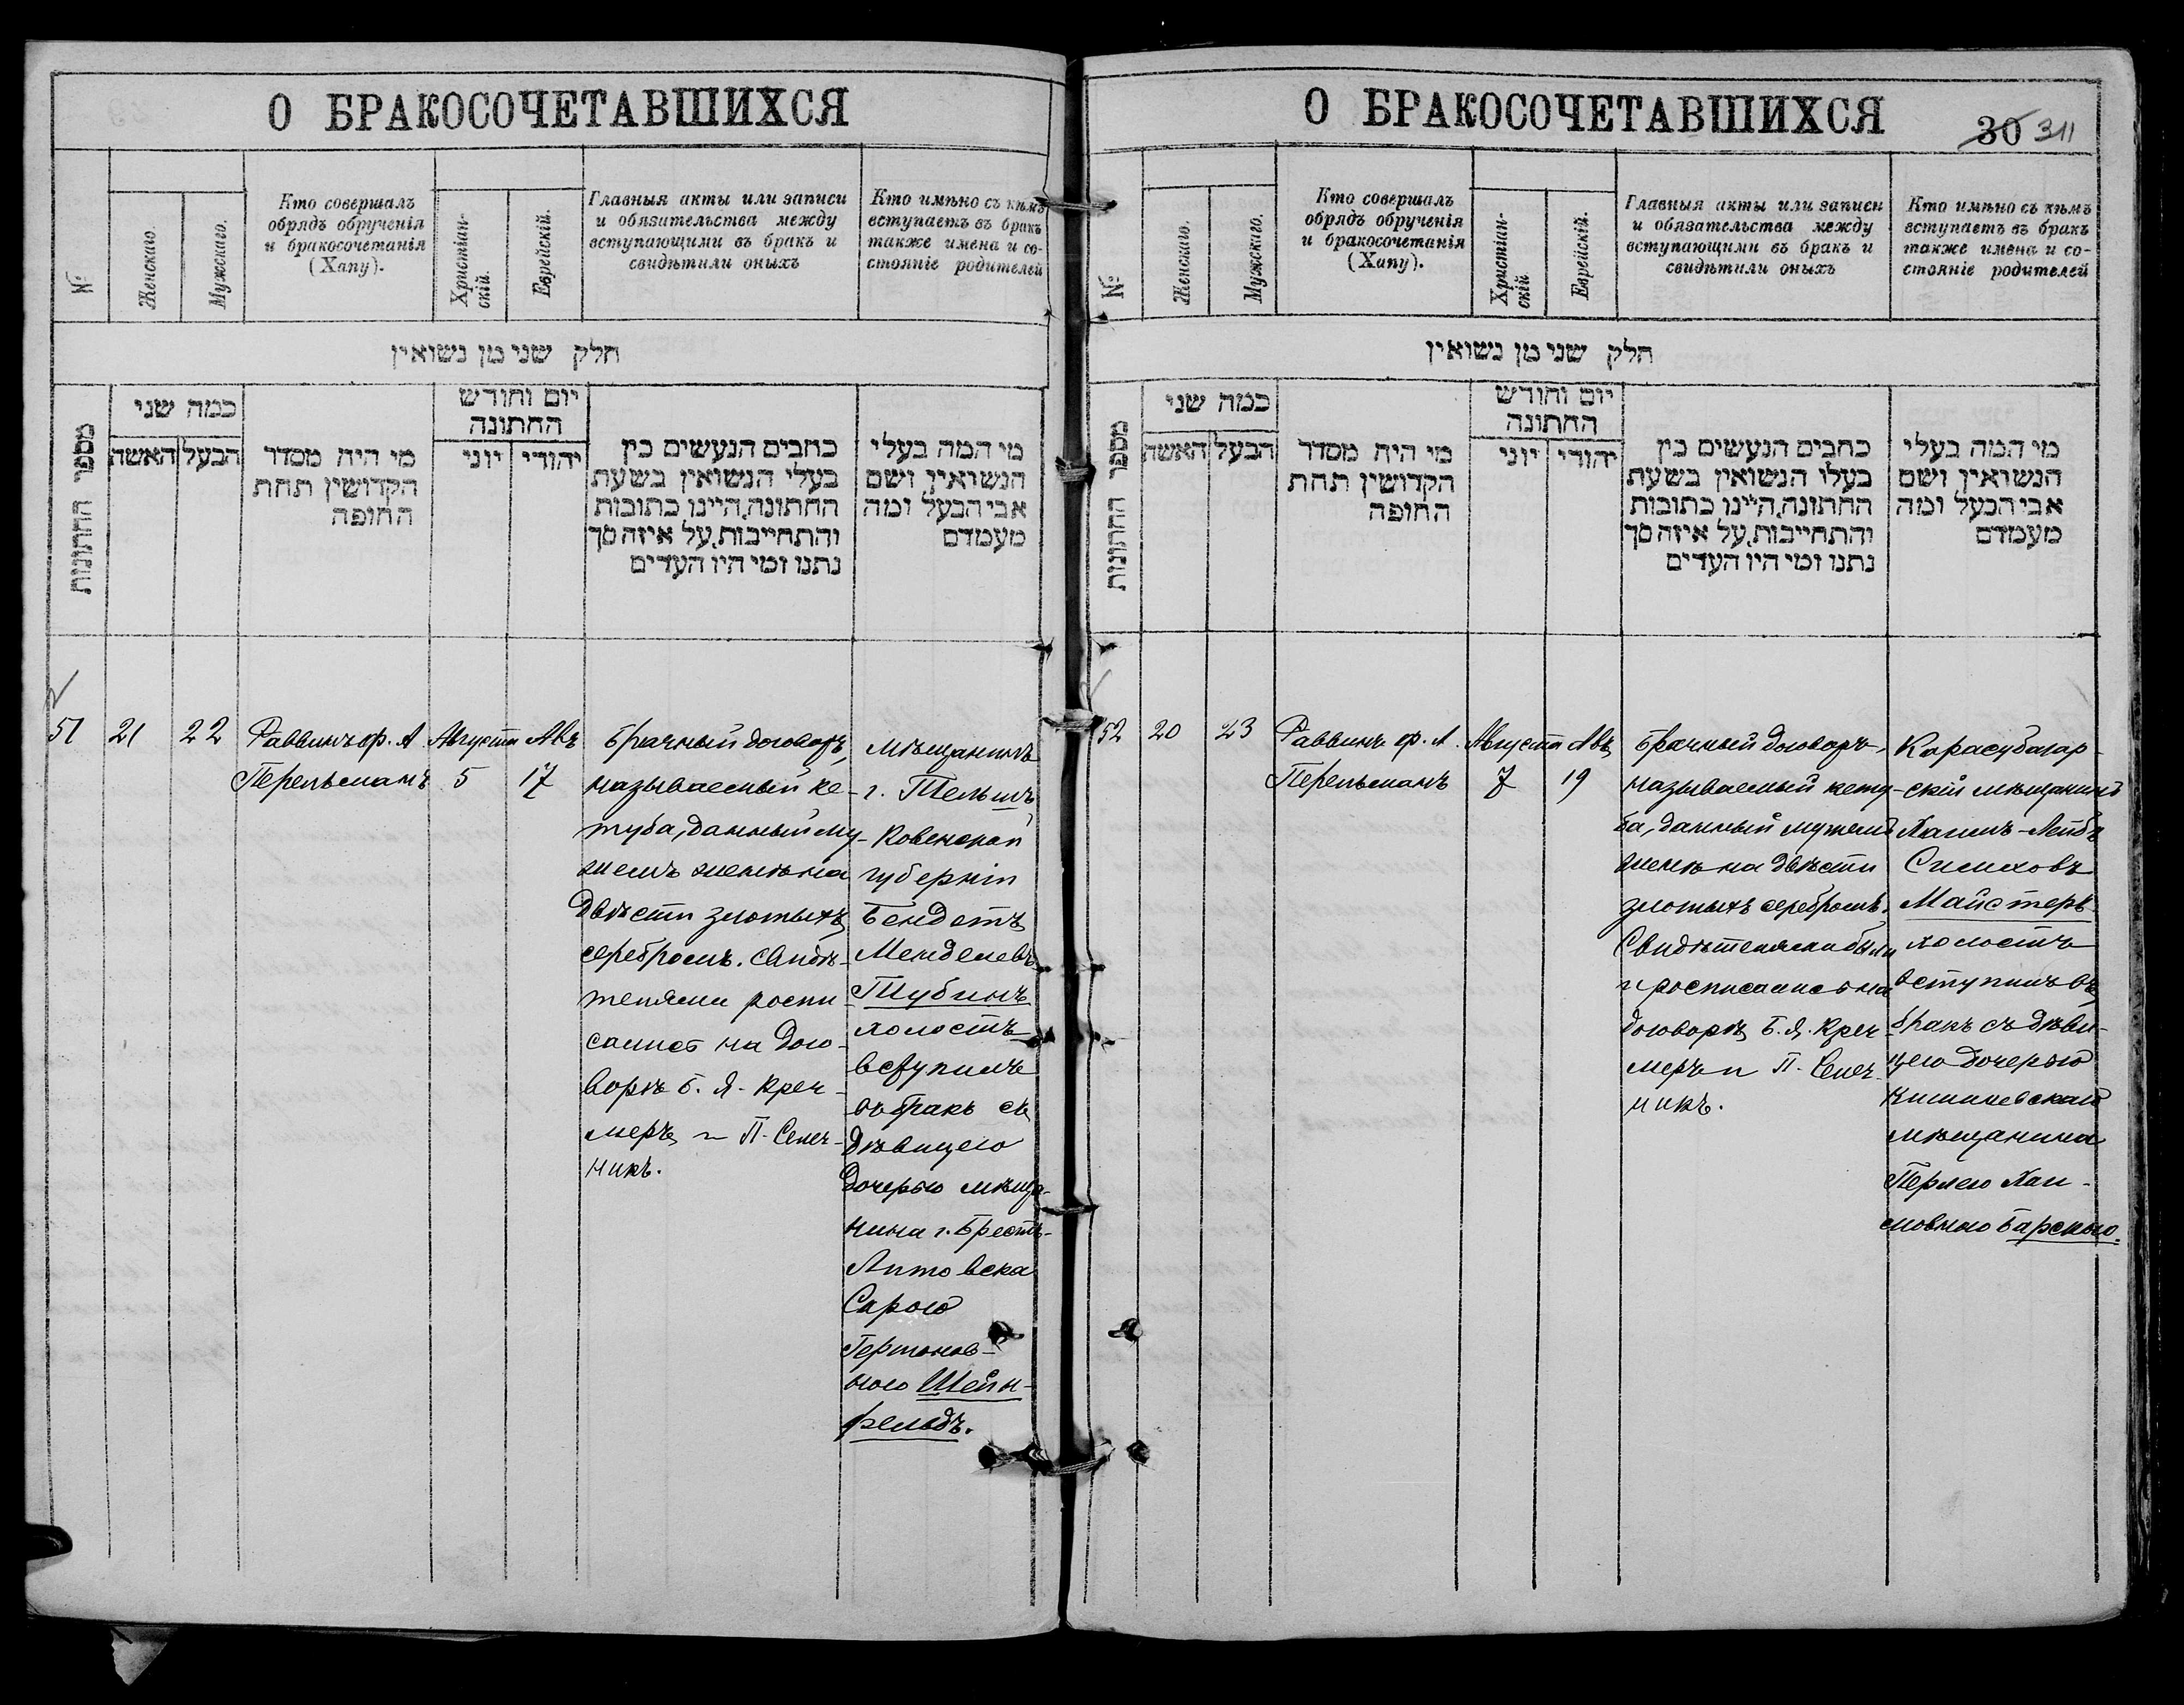 О БРАКОСОЧЕТАВШИХСЯ
№
Женскаго.
Мужскаго.
Кто совершалъ
обрядъ обрученія
и бракосочетанія
(Хапу).
Христіан-
скій.
Еврейскій.
Главныя акты или записи
и обязательства между
вступающими въ бракъ и
свидѣтили оныхъ
Кто имѣно съ кѣмъ
вступаетъ въ бракъ
также имена и со-
стояніе родителей
חלק שני מן נשואין
מספר החתונות
כמה שני
האשה
הבעל
מי היה מסדר
הקדושין תחת
החופה
יום וחודש
החתונה
יוני
יהודי
כתבים הנעשים בין
בעלי הנשואין בשעת
החתונה, היינו כתובות
והתחייבות, על איזה סך
נתנו ומי היו העדים
מי המה בעלי
הנשואין ושם
אבי הבעל ומה
מעמדם
51
21
22
Раввинъ ф. А.
Перельманъ
Августа
5
Авъ
17
Брачный договоръ,
называемый ке-
туба, данный му-
жемъ женѣ на
двѣсти злотыхъ
серебромъ. Свидѣ-
телями роспи-
сались на дого-
ворѣ Б. Я. Креч-
меръ и П. Сечеч-
никъ.
Мѣщанинъ
г. Тельшъ
Ковенской
губерніи
Бендетъ
Менделевъ
Тубинъ
холостъ
вступилъ
въ бракъ съ
дѣвицею
дочерью мѣща-
нина г. Брестъ-
Литовска
Сарою
Гершонов-
ною Шейн-
фельдъ.
О БРАКОСОЧЕТАВШИХСЯ
30 311
№
Женскаго.
Мужскаго.
Кто совершалъ
обрядъ обрученія
и бракосочетанія
(Хапу).
Христіан-
скій
Еврейскій.
Главныя акты или записи
и обязательства между
вступающими въ бракъ и
свидѣтили оныхъ
Кто имѣно съ кѣмъ
вступаетъ въ бракъ
также имена и со-
стояніе родителей
חלק שני מן נשואין
מספר החתונות
כמה שני
האשה
הבעל
מי היה מסדר
הקדושין תחת
החופה
יום וחודש
החתונה
יוני
יהודי
כתבים הנעשים בין
בעלי הנשואין בשעת
החתונה, היינו כתובות
והתחייבות, על איזה סך
נתנו ומי היו העדים
מי המה בעלי
הנשואין ושם
אבי הבעל ומה
מעמדם
52
20
23
Раввинъ ф. А.
Перельманъ
Августа
7
Авъ
19
Брачный договоръ,
называемый кету-
ба, данный мужемъ
женѣ на двѣсти
злотыхъ серебромъ.
Свидѣтелями были
и росписались на
договорѣ Б. Я. Креч-
меръ и П.
никъ.
Карасубазар-
скій мѣщанинъ
Хаимъ-Лейбъ
Симховъ
Майстеръ
холостъ
вступилъ въ
бракъ съ дѣви-
цею дочерью
Кишиневскаго
мѣщанина
Перлею Хаи-
мовною Барскою.